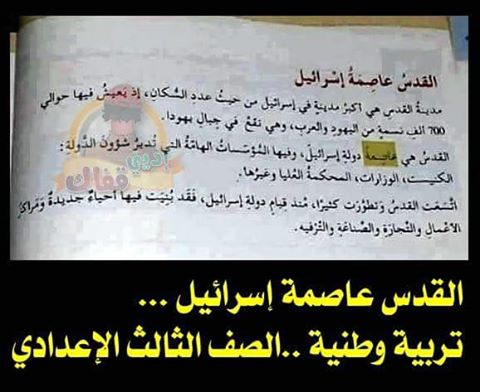 القدسُ عاصِمَةُ إسْرائيل
مدينةُ القدسِ هي أكبرُ مدينةٍ في إسرائيل من حيثُ عددِ السُّكانِ، إذ يَعيشُ فيها حوالي
700 ألفِ نسمةٍ من اليهودِ والعربِ، وهي تقعُ في جبالِ يهودا.
القدسُ هي عاصمةُ دولةِ إسرائيل، وفيها المُؤسّساتُ الهامّةُ التي تُديرُ شؤونَ الدَّولةِ:
الكنيست، الوزارات، المحكمةُ العُليا وغيرُها.
اتَّسَعَت القدسُ وَتطوَّرَت كثيرًا، مُنذ قيامِ دولةِ إسرائيل، فَقَد بُنِيَت فيها أحياءٌ جديدةٌ وَمَراكزُ
الأعمالِ والتِّجارَةِ والصِّناعَةِ والتَّرفيه.
إديي
قفاك
القدس عاصمة إسرائيل ...
تربية وطنية ..الصف الثالث الإعدادي